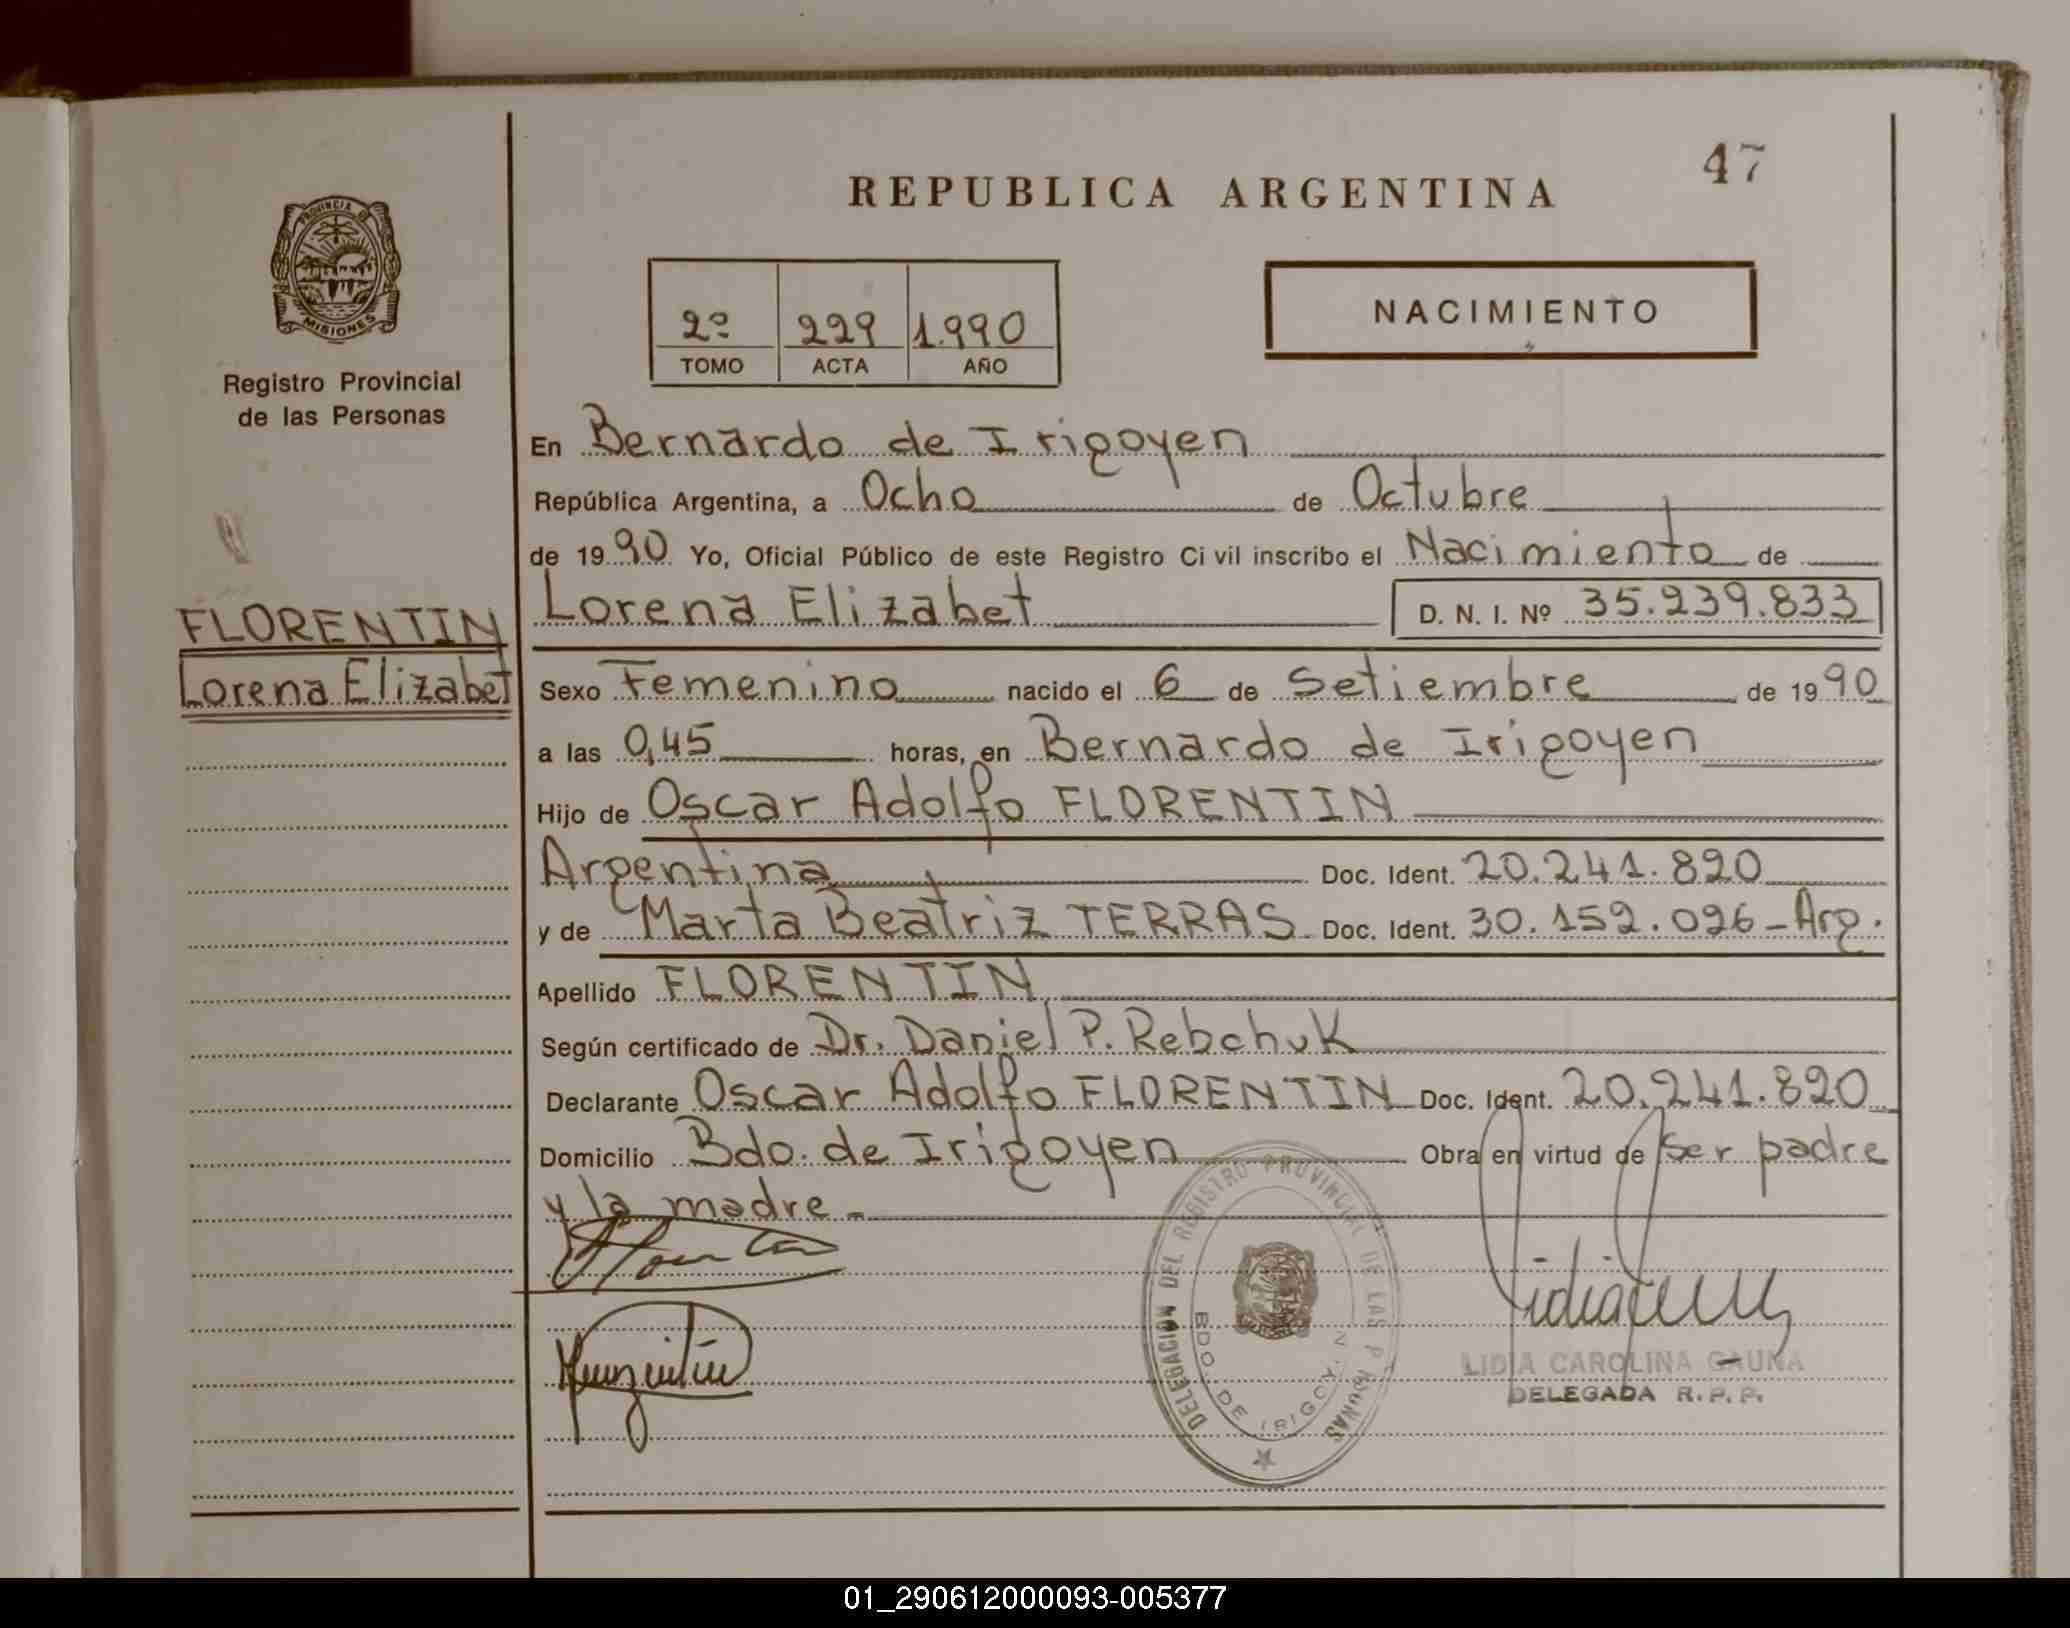 47
REPUBLICA ARGENTINA
PROVINCIA DE
MISIONES
Registro Provincial
de las Personas
2º 229 1.990
TOMO ACTA AÑO
NACIMIENTO
En Bernardo de Irigoyen
República Argentina, a Ocho de Octubre
de 1990 Yo, Oficial Público de este Registro Civil inscribo el Nacimiento de
Lorena Elizabet D. N. I. Nº 35.239.833
FLORENTIN
Lorena Elizabet
Sexo Femenino nacido el 6 de Setiembre de 1990
a las 0,45 horas, en Bernardo de Irigoyen
Hijo de Oscar Adolfo FLORENTIN
Argentina Doc. Ident. 20.241.820
y de Marta Beatriz TERRAS Doc. Ident. 30.152.026 - Arg.
Apellido FLORENTIN
Según certificado de Dr. Daniel P. Rebchuk
Declarante Oscar Adolfo FLORENTIN Doc. Ident. 20.241.820
Domicilio Bdo. de Irigoyen Obra en virtud de ser padre
y la madre -
DELEGACION DEL REGISTRO PROVINCIAL DE LAS
BDO. DE IRIGOY
LIDIA CAROLINA GAUNA
DELEGADA R. P. P.
01_290612000093-005377